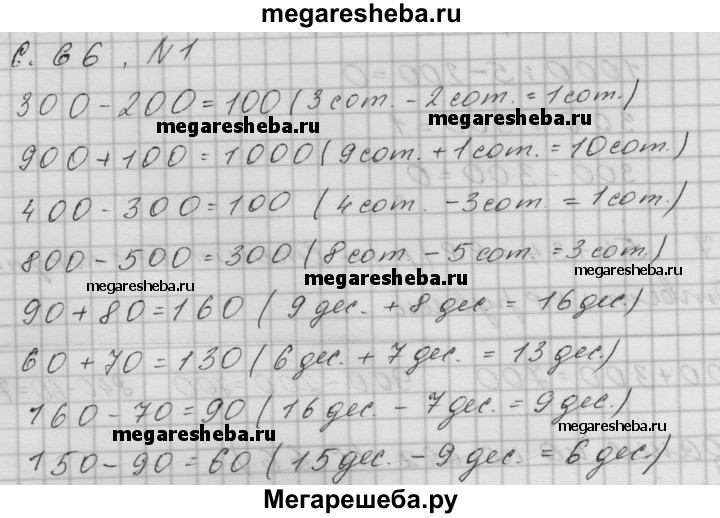 megaresheba.ru
С. 66, N 1
300 - 200 = 100 (3 сот. - 2 сот. = 1 сот.)
megaresheba.ru megaresheba.ru
900 + 100 = 1000 (9 сот. + 1 сот. = 10 сот.)
400 - 300 = 100 (4 сот. - 3 сот. = 1 сот.)
800 - 500 = 300 (8 сот. - 5 сот. = 3 сот.)
megaresheba.ru megaresheba.ru megaresheba.ru
90 + 80 = 160 (9 дес. + 8 дес. = 16 дес.)
60 + 70 = 130 (6 дес. + 7 дес. = 13 дес.)
160 - 70 = 90 (16 дес. - 7 дес. = 9 дес.)
megaresheba.ru megaresheba.ru
150 - 90 = 60 (15 дес. - 9 дес. = 6 дес.)
Мегарешеба.ру